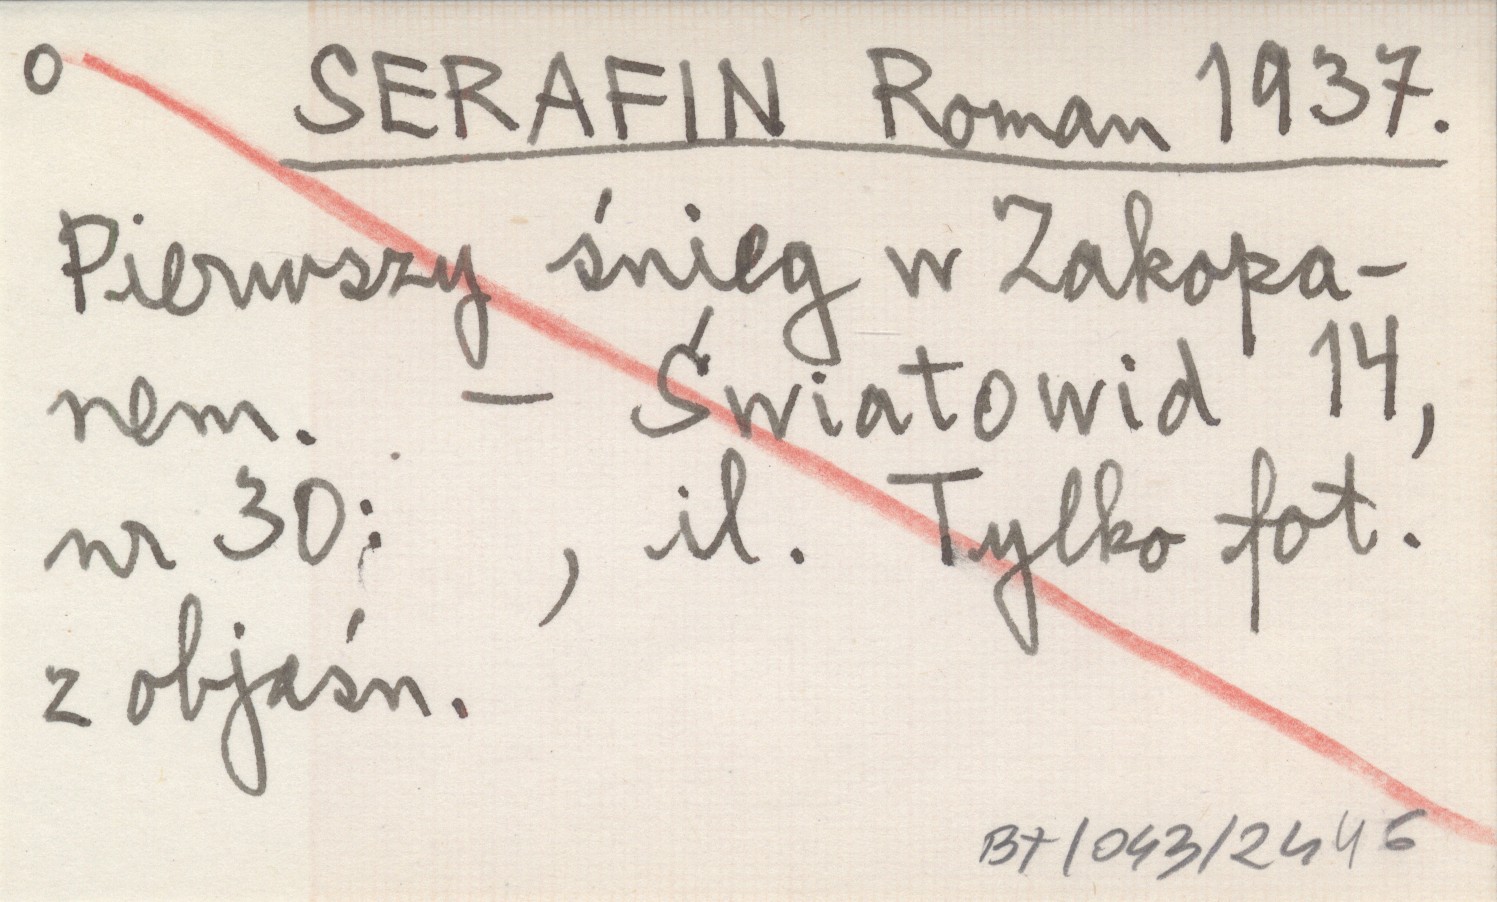 o SERAFIN Roman 1937.
Pierwszy śnieg w Zakopa-
nem. – Światowid 14,
nr 30: , il. Tylko fot.
z objaśn.
BT/043/2445